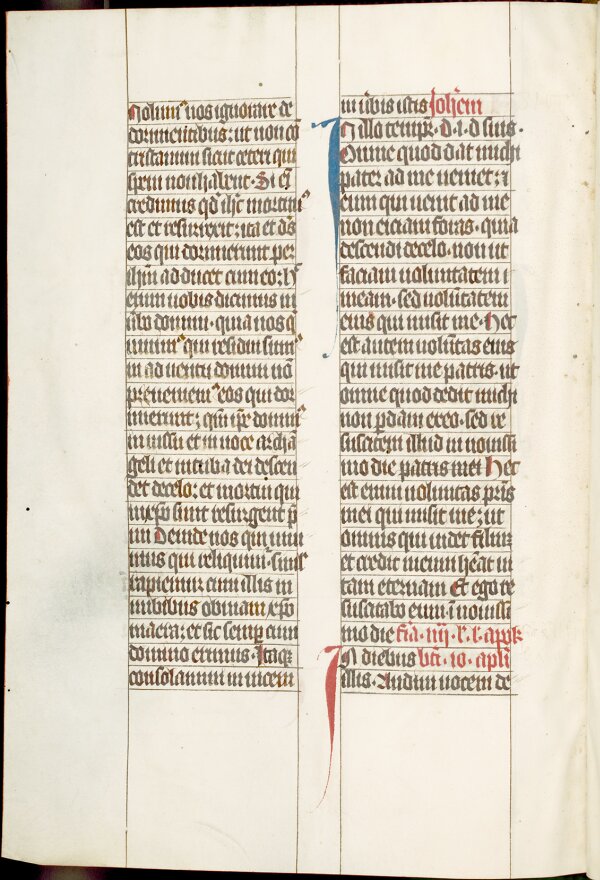 Nolumꝰ uos ignorare de
dormientibus: ut non cō
tristamini sicut ceteri qui
spem non habent. Si eī
credimus qd̄ ihc̄ mortuꝰ
est et resurrexit: ita et ds̄
eos qui dormierunt per
ihm̄ adducet cum eo: h̄
enim uobis dicimus in
ūbo domini. quia nos q̄
uiuimꝰ qui residui sumꝰ
in aduentū domini nō
preueniemꝰ eos qui dor
mierunt; qm̄ ip̄e dominꝰ
in iussu et in uoce archā
geli et in tuba dei descen
det de celo: et mortui qui
in xp̄o sunt resurgent p̄
mi Deinde nos qui uiui
mus qui relinquimꝰ simꝉ
rapiemur cum illis in
nubibus obuiam xp̄o
in aera: et sic semp̄ cum
domino erimus. Itaqꝫ
consolamini in uicem
in ūbis istis Iohem̄
In illo tempr̄. d. i. d suis.
Omne quod dat michi
pater ad me ueniet: ⁊
eum qui uenit ad me
non eiciam foras. quia
descendi de celo. non ut
faciam uoluntatem
meam. sed uolūtatem
eius qui misit me. Hec
est autem uolūtas eius
qui misit me patris. ut
omne quod dedit michi
non p̄dam ex eo. sed re
suscitem illud in nouissi
mo die patris mei Hec
est enim uoluntas pr̄is
mei qui misit me; ut
omnis qui uidet filiū
et credit in eum hēat ui
tam eternam Et ego re
suscitabo eum ī nouissi
mo die fr̄ia. iiij. l. l. apok
In diebus bt̄i. io. apl̄i
illis. Audiui uocem de